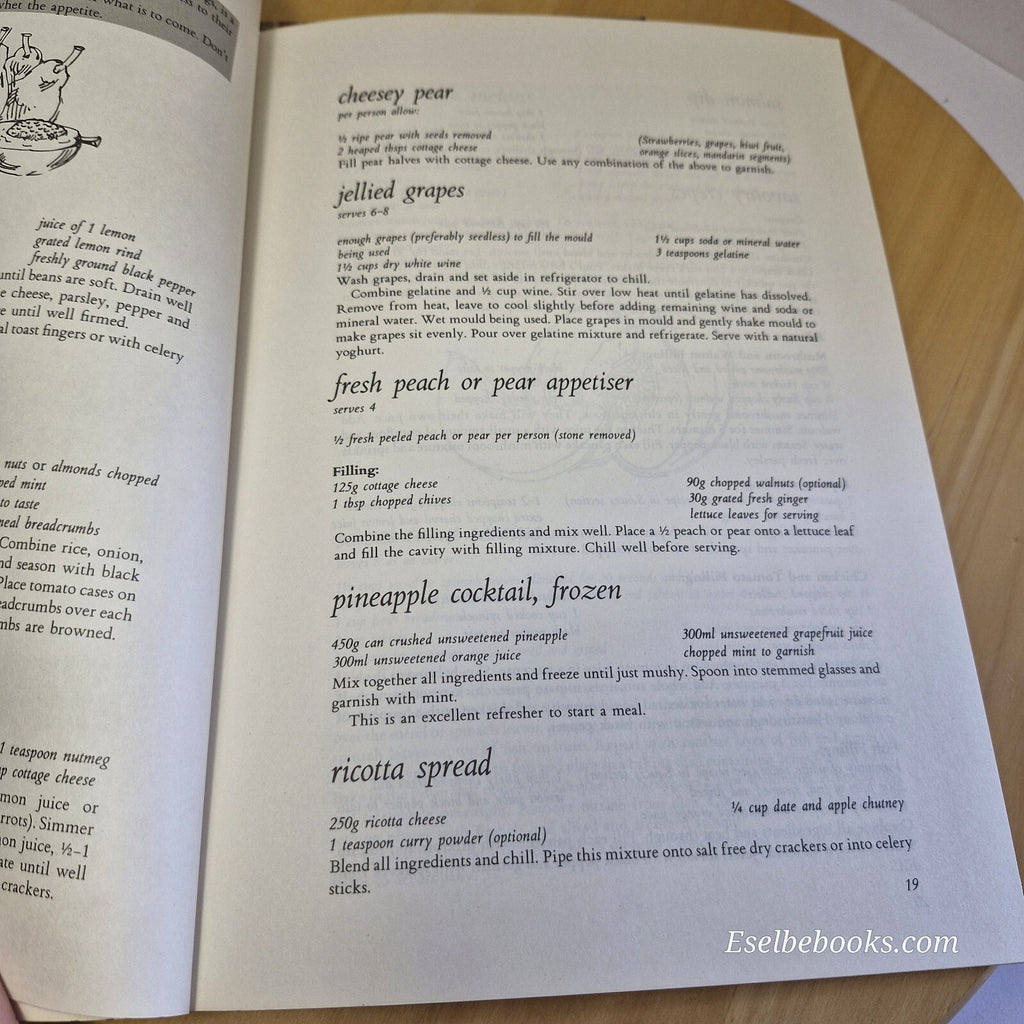 whet the appetite.
what is to come. Don't
juice of 1 lemon
grated lemon rind
freshly ground black pepper
until beans are soft. Drain well
cheese, parsley, pepper and
until well firmed.
toast fingers or with celery
nuts or almonds chopped
mint
to taste
breadcrumbs
Combine rice, onion,
season with black
Place tomato cases on
over each
are browned.
1 teaspoon nutmeg
cottage cheese
juice or
Simmer
juice, ½–1
until well
crackers.
cheesey pear
per person allow:
½ ripe pear with seeds removed
2 heaped tbsps cottage cheese
(Strawberries, grapes, kiwi fruit,
orange slices, mandarin segments)
Fill pear halves with cottage cheese. Use any combination of the above to garnish.
jellied grapes
serves 6–8
enough grapes (preferably seedless) to fill the mould
being used
1½ cups dry white wine
1½ cups soda or mineral water
3 teaspoons gelatine
Wash grapes, drain and set aside in refrigerator to chill.
Combine gelatine and ½ cup wine. Stir over low heat until gelatine has dissolved.
Remove from heat, leave to cool slightly before adding remaining wine and soda or
mineral water. Wet mould being used. Place grapes in mould and gently shake mould to
make grapes sit evenly. Pour over gelatine mixture and refrigerate. Serve with a natural
yoghurt.
fresh peach or pear appetiser
serves 4
½ fresh peeled peach or pear per person (stone removed)
Filling:
125g cottage cheese
1 tbsp chopped chives
90g chopped walnuts (optional)
30g grated fresh ginger
lettuce leaves for serving
Combine the filling ingredients and mix well. Place a ½ peach or pear onto a lettuce leaf
and fill the cavity with filling mixture. Chill well before serving.
pineapple cocktail, frozen
450g can crushed unsweetened pineapple
300ml unsweetened orange juice
300ml unsweetened grapefruit juice
chopped mint to garnish
Mix together all ingredients and freeze until just mushy. Spoon into stemmed glasses and
garnish with mint.
This is an excellent refresher to start a meal.
ricotta spread
250g ricotta cheese
1 teaspoon curry powder (optional)
¼ cup date and apple chutney
Blend all ingredients and chill. Pipe this mixture onto salt free dry crackers or into celery
sticks.
19
Eselbebooks.com